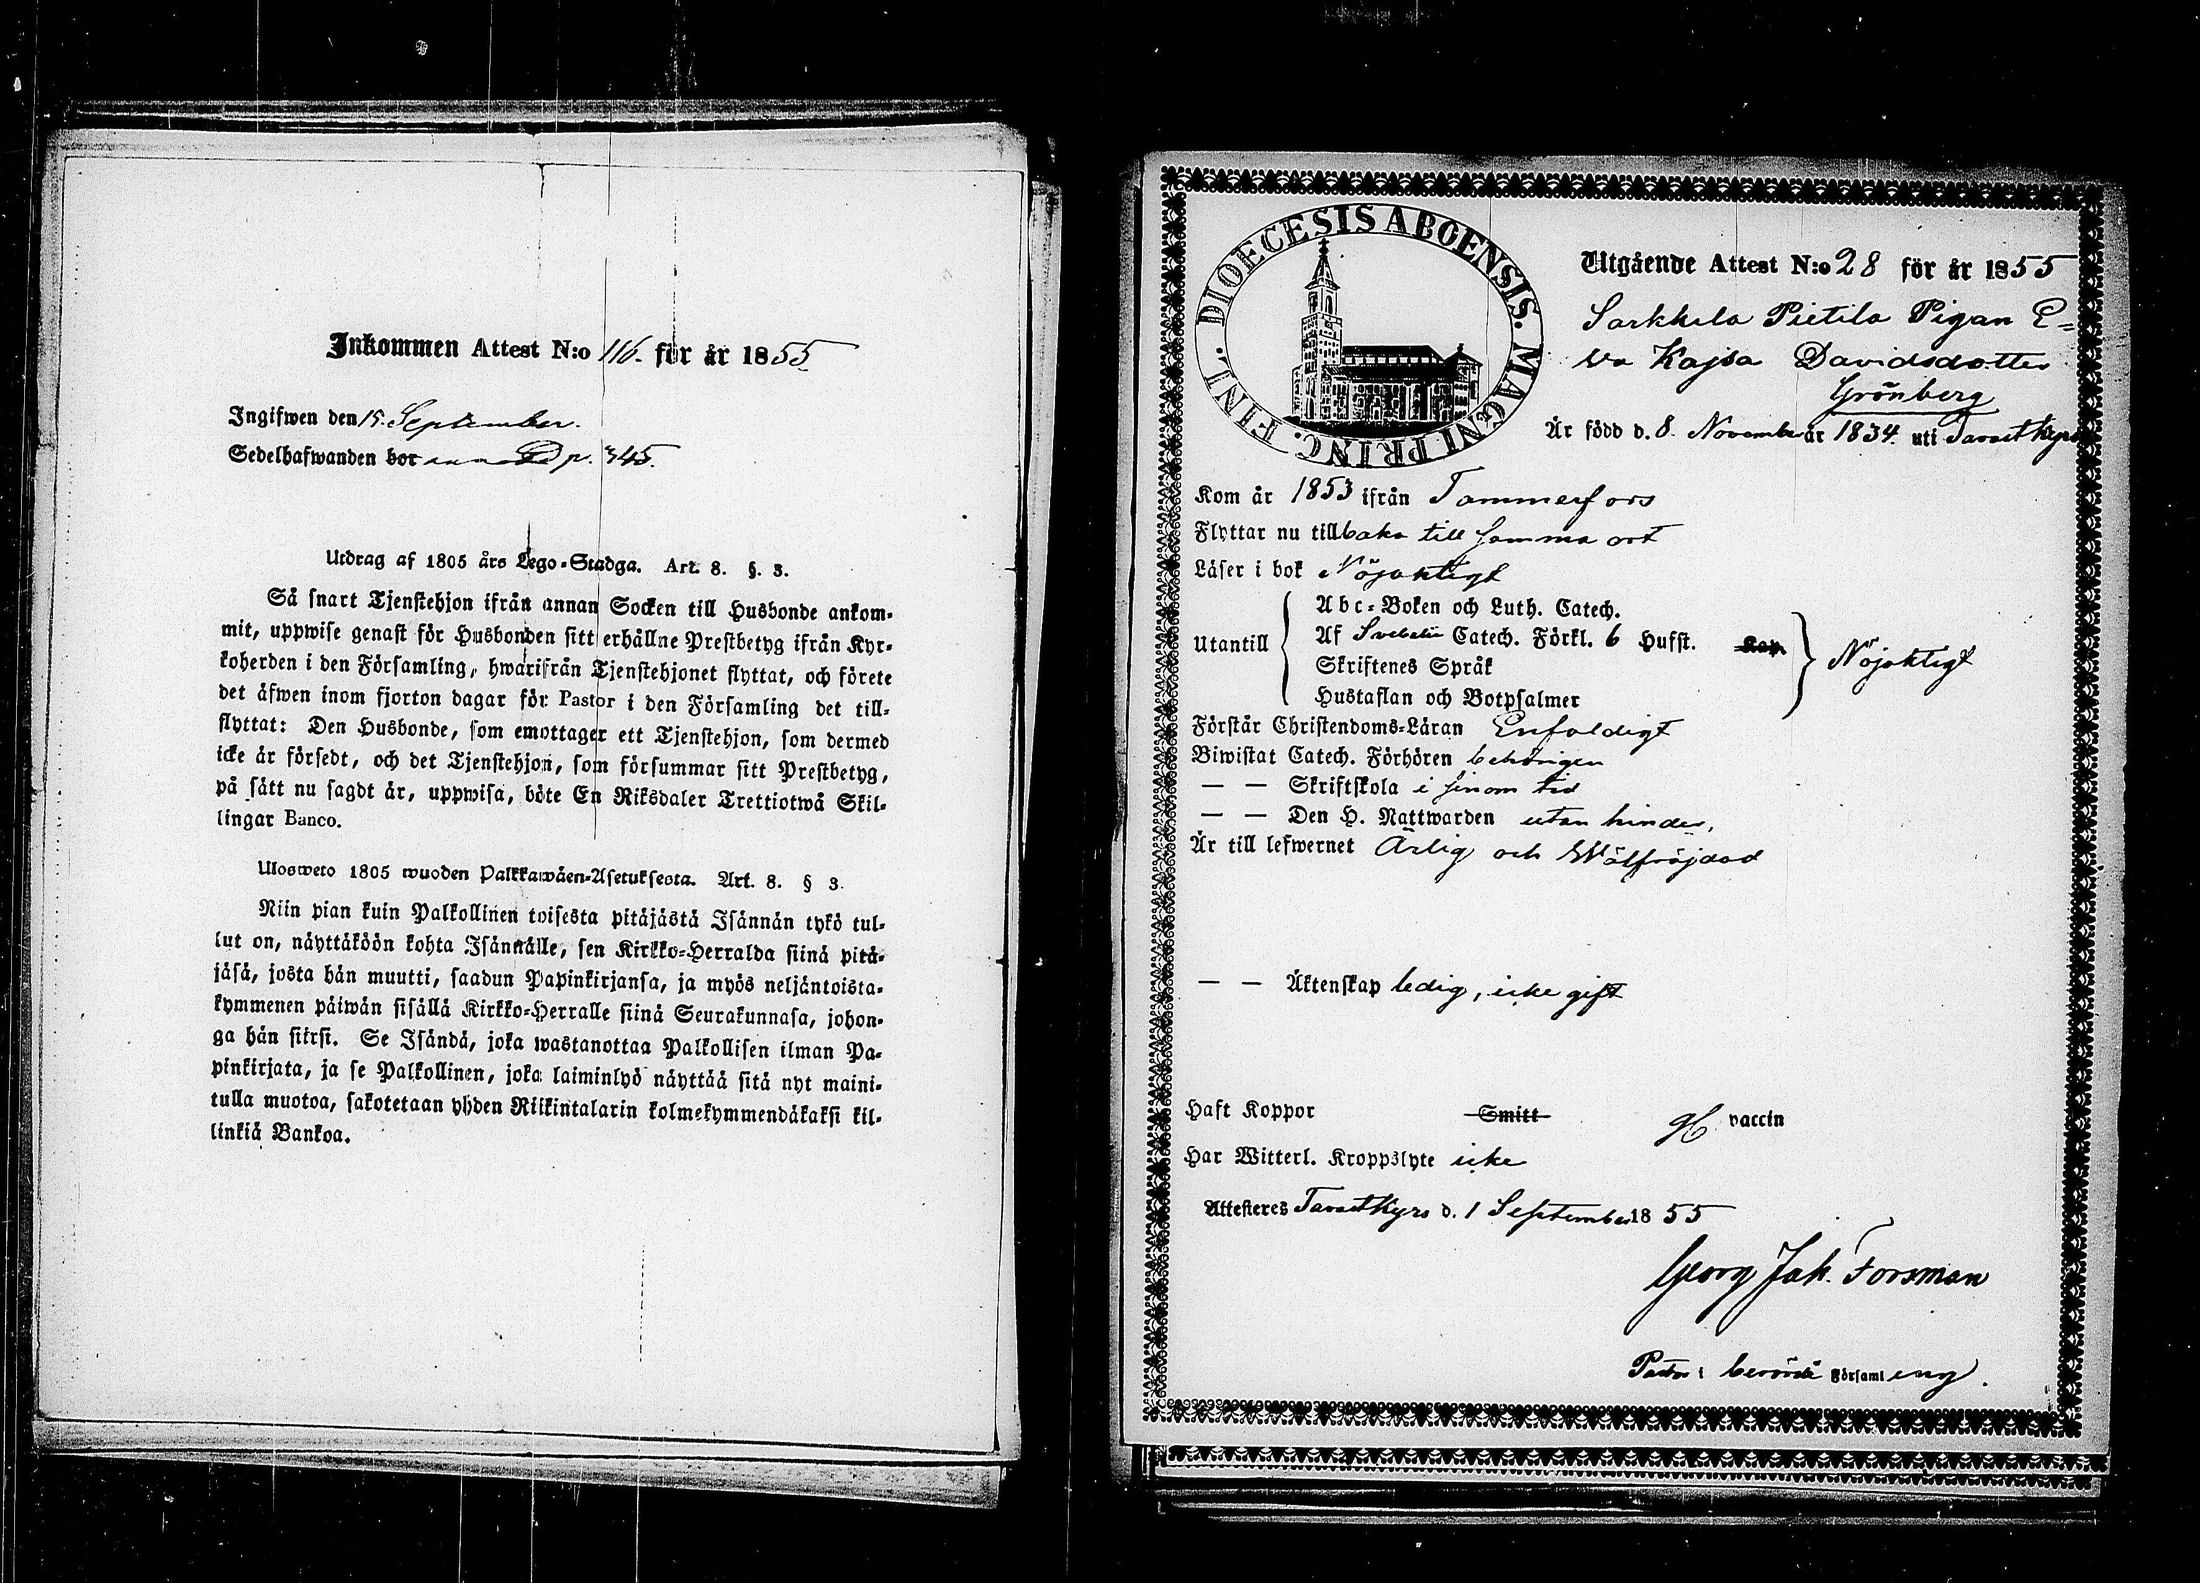 Inkommen Attest N:o 116. för år 1855.
Ingifwen den 15. September.
Sedelhafwanden bor p. 345.
Utdrag af 1805 års Lego-Stadga. Art. 8. §. 3.
Så snart Tjenstehjon ifrån annan Socken till Husbonde ankom-
mit, uppwise genast för Husbonden sitt erhållne Prestbetyg ifrån Kyr-
koherden i den Församling, hwarifrån Tjenstehjonet flyttat, och förete
det äfwen inom fjorton dagar för Pastor i den Församling det till-
flyttat: Den Husbonde, som emottager ett Tjenstehjon, som dermed
icke är försedt, och det Tjenstehjon, som försummar sitt Prestbetyg,
på sätt nu sagdt är, uppwisa, böte En Riksdaler Trettiotwå Skil-
lingar Banco.
Ulosweto 1805 wuoden Palkkawäen-Asetuksesta. Art. 8. § 3.
Niin pian kuin Palkollinen toisesta pitäjästä Isännän tykö tul-
lut on, näyttäköön kohta Isännälle, sen Kirkko-Herralda siinä pitä-
jäsä, josta hän muutti, saadun Papinkirjansa, ja myös neljäntoista-
kymmenen päiwän sisällä Kirkko-Herralle siinä Seurakunnasa, johon-
ga hän siirsi. Se Isändä, joka wastanottaa Palkollisen ilman Pa-
pinkirjata, ja se Palkollinen, joka laiminlyö näyttää sitä nyt maini-
tulla muotoa, sakotetaan yhden Riikintalarin kolmekymmendäkaksi kil-
linkiä Bankoa.
DIOECESIS ABOENSIS. MAGNI PRINC. FINL.
Utgående Attest N:o 28 för år 1855
Sarkkila Pietila Pigan E=
va Kajsa Davidsdotter
Grönberg
Är född d. 8. November år 1834. uti Tavastkyro
Kom år 1853 ifrån Tammerfors
Flyttar nu tillbaka till samma ort
Läser i bok Nöjaktigt
Utantill
Abc-Boken och Luth. Catech.
Af Svebelii Catech. Förkl. 6 Hufst. Kap.
Skriftenes Språk
Hustaflan och Botpsalmer
Nöjaktigt
Förstår Christendoms-Läran Enfaldigt
Biwistat Catech. Förhören behörigen
— — Skriftskola i sinom tid
— — Den H. Nattwarden utan hinder,
Är till lefwernet Ärlig och Wälfräjdad
— — Äktenskap ledig, icke gift
Haft Koppor Smitt vaccin
Har Witterl. Kroppslyte icke
Attesteres Tavastkyro d. 1 September 1855
Georg Jak. Forsman
Pastor i berörde Församling.